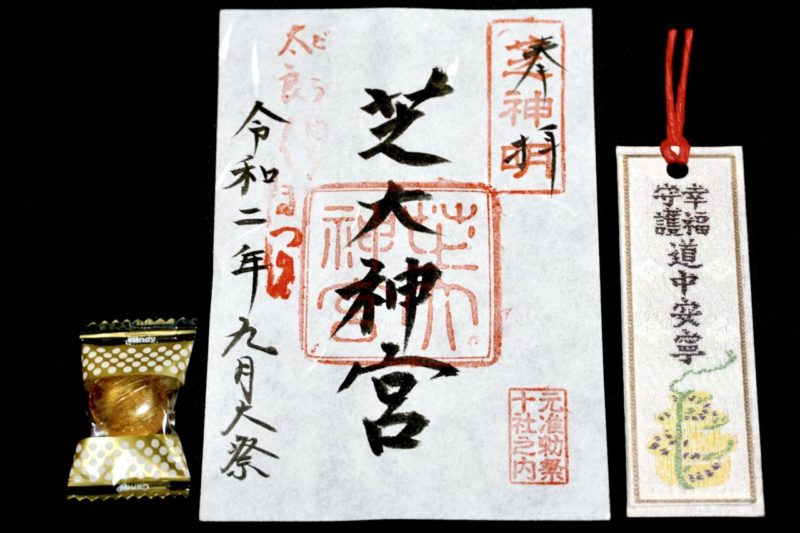 奉拝
芝神明
芝大神宮
芝大
神宮
元准勅祭
十社之内
太良
まつり
令和二年九月大祭
幸福
守護
道中安寧
Candy
Candy